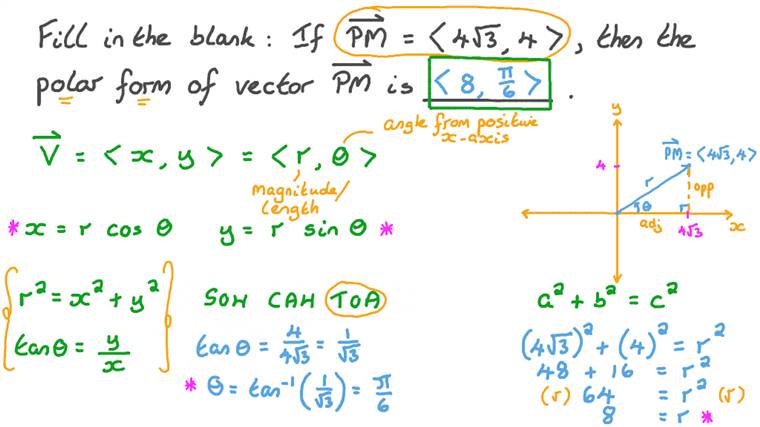 Fill in the blank: If PM⃗ = ⟨4√3, 4⟩, then the
polar form of vector PM⃗ is ⟨8, π/6⟩.
angle from positive
x-axis
V⃗ = ⟨x, y⟩ = ⟨r, θ⟩
magnitude/
length
* x = r cos θ y = r sin θ *
y
4
PM⃗ = ⟨4√3, 4⟩
r
opp
θ
adj
4√3
x
r² = x² + y²
tan θ = y/x
SOH CAH TOA
tan θ = 4/4√3 = 1/√3
* θ = tan⁻¹(1/√3) = π/6
a² + b² = c²
(4√3)² + (4)² = r²
48 + 16 = r²
(√) 64 = r² (√)
8 = r *